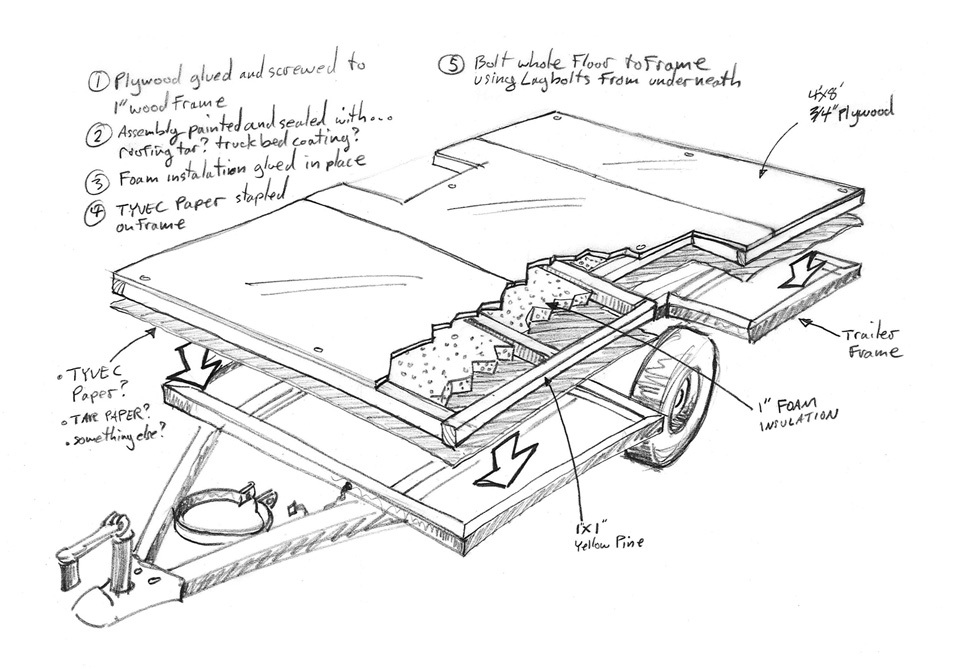 ① Plywood glued and screwed to
1" wood Frame
② Assembly painted and sealed with...
roofing tar? truck bed coating?
③ Foam instalation glued in place
④ TYVEC Paper stapled
on Frame
⑤ Bolt whole Floor to Frame
using Lagbolts From underneath
4'x8'
3/4" Plywood
Trailer
Frame
1" FOAM
INSULATION
1"x1"
Yellow Pine
• TYVEC
Paper?
• TAR PAPER?
• something else?